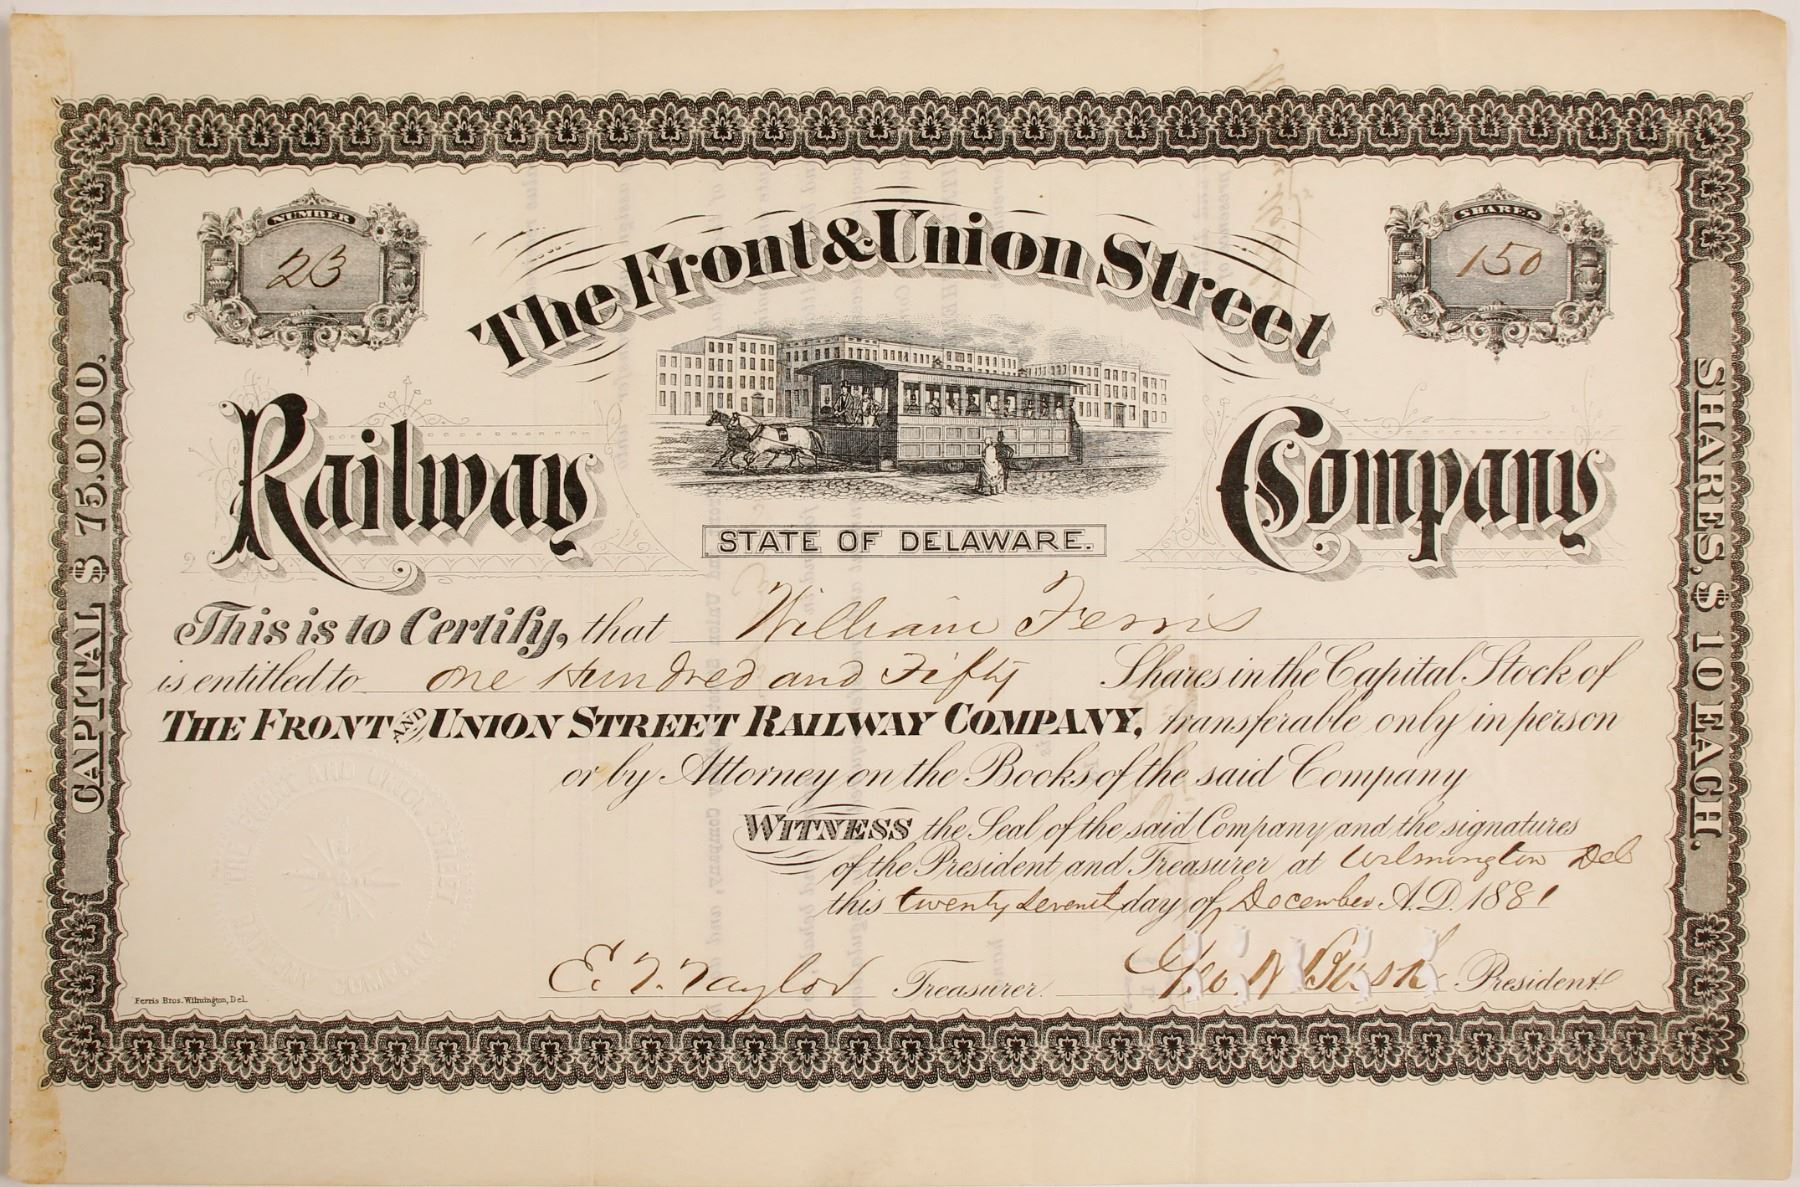 NUMBER
23
SHARES
150
The Front & Union Street
Railway Company
STATE OF DELAWARE.
CAPITAL $ 75.000.
SHARES, $ 10 EACH.
This is to Certify, that William Ferris
is entitled to One Hundred and Fifty Shares in the Capital Stock of
THE FRONT AND UNION STREET RAILWAY COMPANY, transferable only in person
or by Attorney on the Books of the said Company
WITNESS the Seal of the said Company and the signatures
of the President and Treasurer at Wilmington Del
this twenty seventh day of December A.D. 1881
E. T. Taylor Treasurer. Geo. W Bush President
Ferris Bros. Wilmington, Del.
THE FRONT AND UNION STREET RAILWAY COMPANY